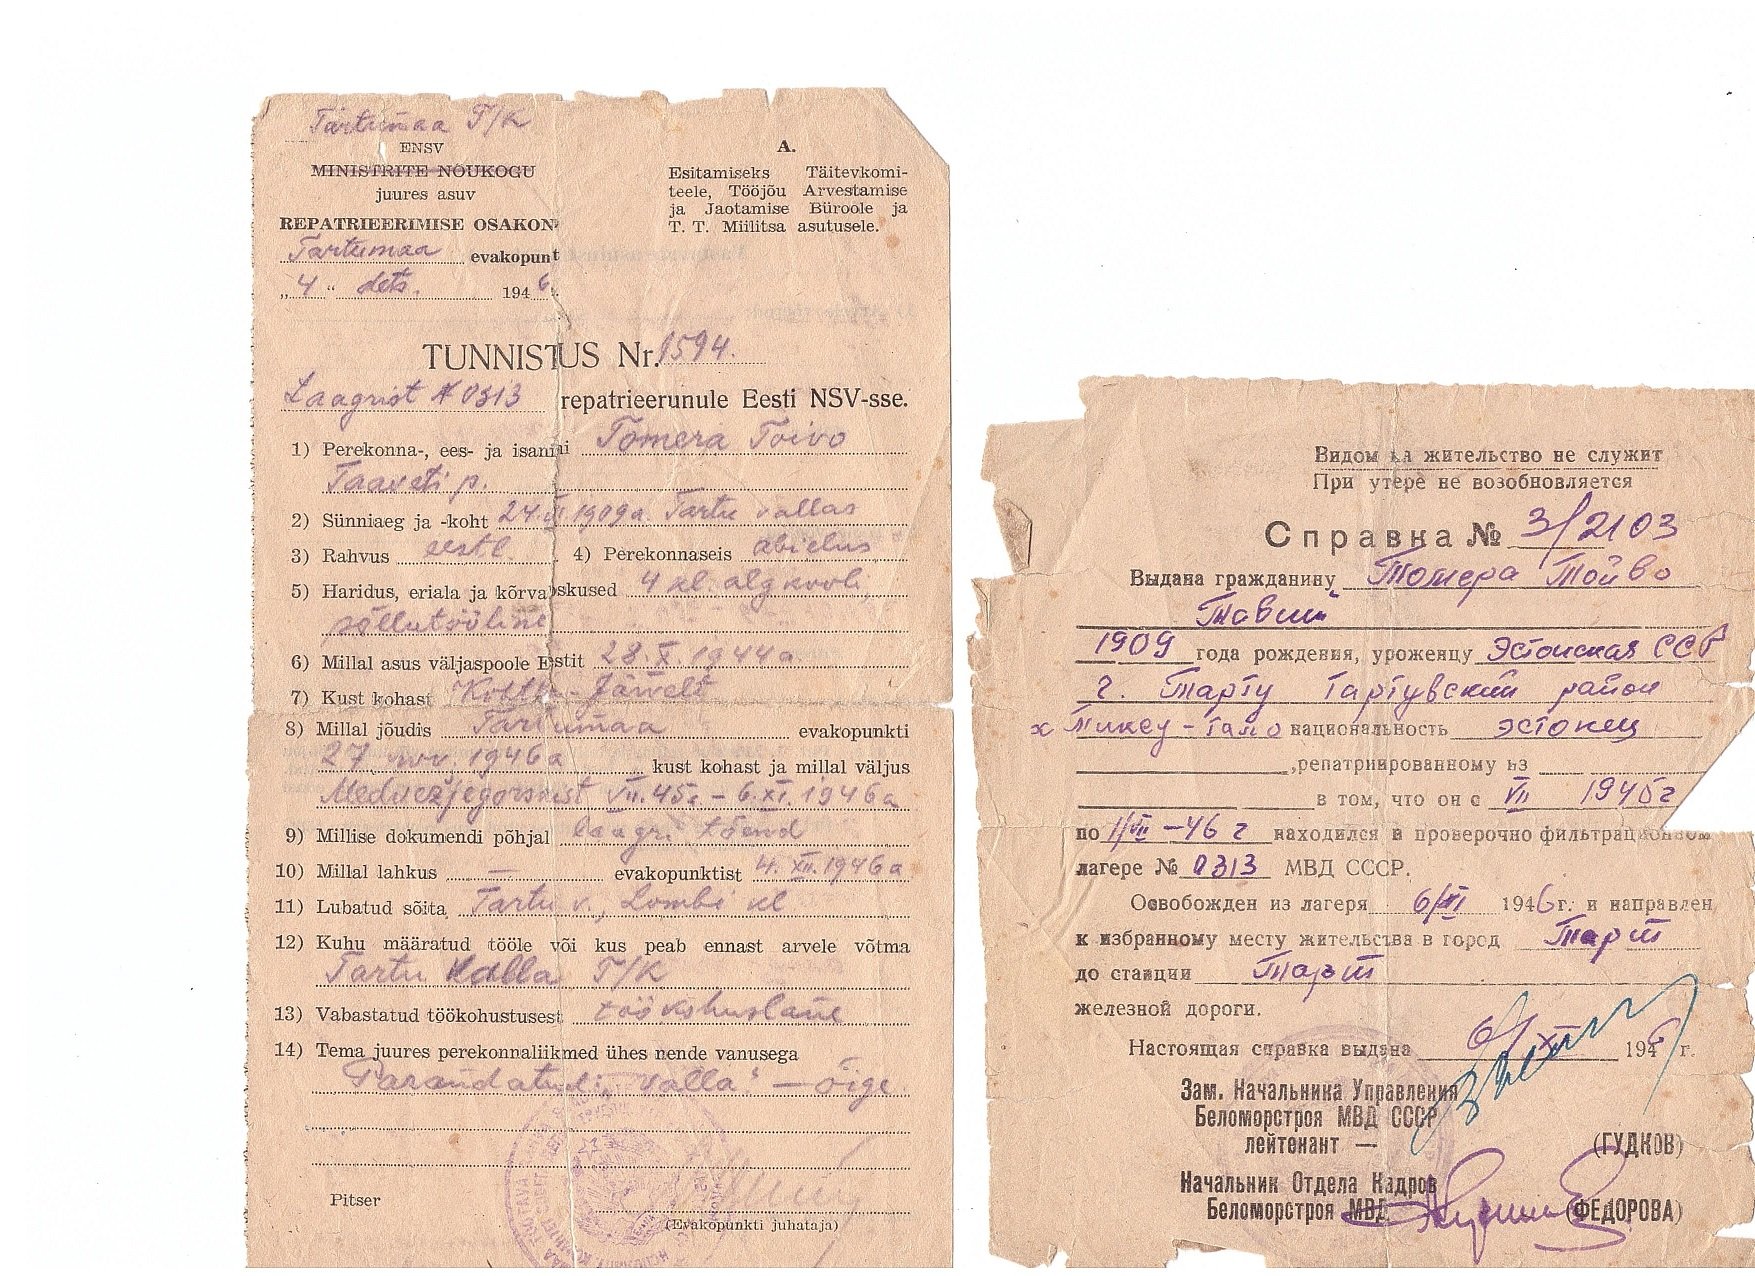 Tartumaa T/K
ENSV
MINISTRITE NÕUKOGU
juures asuv
REPATRIEERIMISE OSAKON
Tartumaa evakopunt
„4“ dets. 1946.
A.
Esitamiseks Täitevkomi-
teele, Tööjõu Arvestamise
ja Jaotamise Büroole ja
T. T. Miilitsa asutusele.
TUNNISTUS Nr. 1594.
Laagrist N 0313 repatrieerunule Eesti NSV-sse.
1) Perekonna-, ees- ja isanimi Tomera Toivo
Taaveti p.
2) Sünniaeg ja -koht 24.VI.1909a. Tartu vallas
3) Rahvus eestl. 4) Perekonnaseis abielus
5) Haridus, eriala ja kõrvaloskused 4 kl. algkooli,
põllutööline
6) Millal asus väljaspoole Eestit 28.X.1944a
7) Kust kohast -Järvelt
8) Millal jõudis Tartumaa evakopunkti
27. nov. 1946a kust kohast ja millal väljus
Medvezjegorskist VII.45a – 6.XI.1946a
9) Millise dokumendi põhjal laagri tõend
10) Millal lahkus — evakopunktist 4.XII.1946a
11) Lubatud sõita Tartu v., Lombi kl
12) Kuhu määratud tööle või kus peab ennast arvele võtma
Tartu Valla T/K
13) Vabastatud töökohustusest töökohuslane
14) Tema juures perekonnaliikmed ühes nende vanusega
Parandatud: "valla" — õige
Pitser
(Evakopunkti juhataja)
Видом на жительство не служит
При утере не возобновляется
Справка № 3/2103
Выдана гражданину Томера Тойво
Тавит
1909 года рождения, уроженцу Эстонская ССР
г. Тарту Тартувский район
х Микеу-тало национальность эстонец
,репатриированному из
в том, что он с VII 1945г
по 11/VII-46г находился в проверочно фильтрационном
лагере № 0313 МВД СССР.
Освобожден из лагеря 6/XI 1946г. и направлен
к избранному месту жительства в город Тарт
до станции Тарт
железной дороги.
Настоящая справка выдана 6/XI 1946 г.
Зам. Начальника Управления
Беломорстроя МВД СССР
лейтенант — (ГУДКОВ)
Начальник Отдела Кадров
Беломорстроя МВД (ФЕДОРОВА)